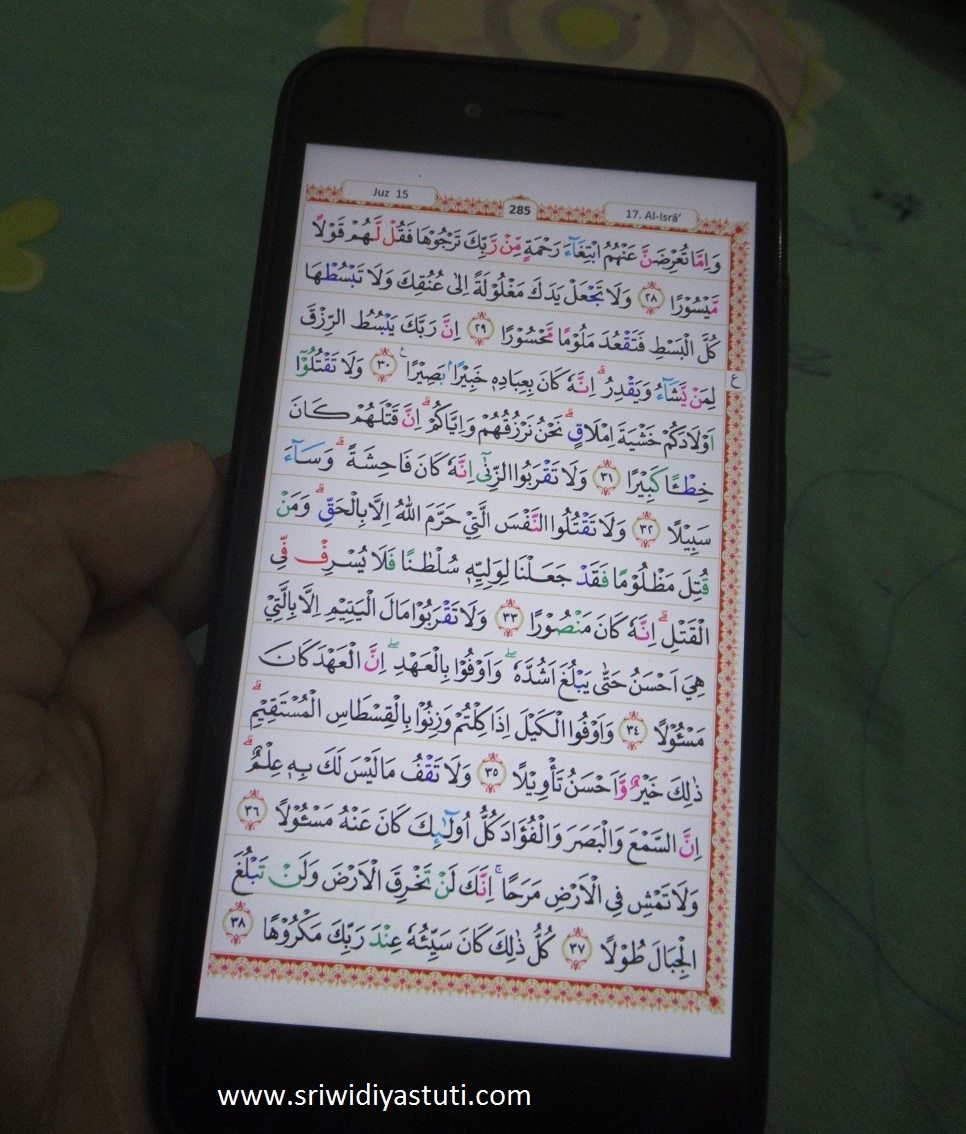 Juz 15
285
17. Al-Isrā'
وَاِمَّا تُعْرِضَنَّ عَنْهُمُ ابْتِغَاۤءَ رَحْمَةٍ مِّنْ رَّبِّكَ تَرْجُوْهَا فَقُلْ لَّهُمْ قَوْلًا
مَّيْسُوْرًا ٢٨ وَلَا تَجْعَلْ يَدَكَ مَغْلُوْلَةً اِلٰى عُنُقِكَ وَلَا تَبْسُطْهَا
كُلَّ الْبَسْطِ فَتَقْعُدَ مَلُوْمًا مَّحْسُوْرًا ٢٩ اِنَّ رَبَّكَ يَبْسُطُ الرِّزْقَ
لِمَنْ يَّشَاۤءُ وَيَقْدِرُ ۗ اِنَّهٗ كَانَ بِعِبَادِهٖ خَبِيْرًاۢ بَصِيْرًا ࣖ ٣٠ وَلَا تَقْتُلُوْٓا
ع
اَوْلَادَكُمْ خَشْيَةَ اِمْلَاقٍۗ نَحْنُ نَرْزُقُهُمْ وَاِيَّاكُمْۗ اِنَّ قَتْلَهُمْ كَانَ
خِطْـًٔا كَبِيْرًا ٣١ وَلَا تَقْرَبُوا الزِّنٰٓى اِنَّهٗ كَانَ فَاحِشَةً ۗ وَسَاۤءَ
سَبِيْلًا ٣٢ وَلَا تَقْتُلُوا النَّفْسَ الَّتِيْ حَرَّمَ اللّٰهُ اِلَّا بِالْحَقِّۗ وَمَنْ
قُتِلَ مَظْلُوْمًا فَقَدْ جَعَلْنَا لِوَلِيِّهٖ سُلْطٰنًا فَلَا يُسْرِفْ فِّى
الْقَتْلِۗ اِنَّهٗ كَانَ مَنْصُوْرًا ٣٣ وَلَا تَقْرَبُوْا مَالَ الْيَتِيْمِ اِلَّا بِالَّتِيْ
هِيَ اَحْسَنُ حَتّٰى يَبْلُغَ اَشُدَّهٗۖ وَاَوْفُوْا بِالْعَهْدِۖ اِنَّ الْعَهْدَ كَانَ
مَسْـُٔوْلًا ٣٤ وَاَوْفُوا الْكَيْلَ اِذَا كِلْتُمْ وَزِنُوْا بِالْقِسْطَاسِ الْمُسْتَقِيْمِۗ
ذٰلِكَ خَيْرٌ وَّاَحْسَنُ تَأْوِيْلًا ٣٥ وَلَا تَقْفُ مَا لَيْسَ لَكَ بِهٖ عِلْمٌۗ
اِنَّ السَّمْعَ وَالْبَصَرَ وَالْفُؤَادَ كُلُّ اُولٰۤىِٕكَ كَانَ عَنْهُ مَسْـُٔوْلًا ٣٦
وَلَا تَمْشِ فِى الْاَرْضِ مَرَحًاۚ اِنَّكَ لَنْ تَخْرِقَ الْاَرْضَ وَلَنْ تَبْلُغَ
الْجِبَالَ طُوْلًا ٣٧ كُلُّ ذٰلِكَ كَانَ سَيِّئُهٗ عِنْدَ رَبِّكَ مَكْرُوْهًا ٣٨
www.sriwidiyastuti.com